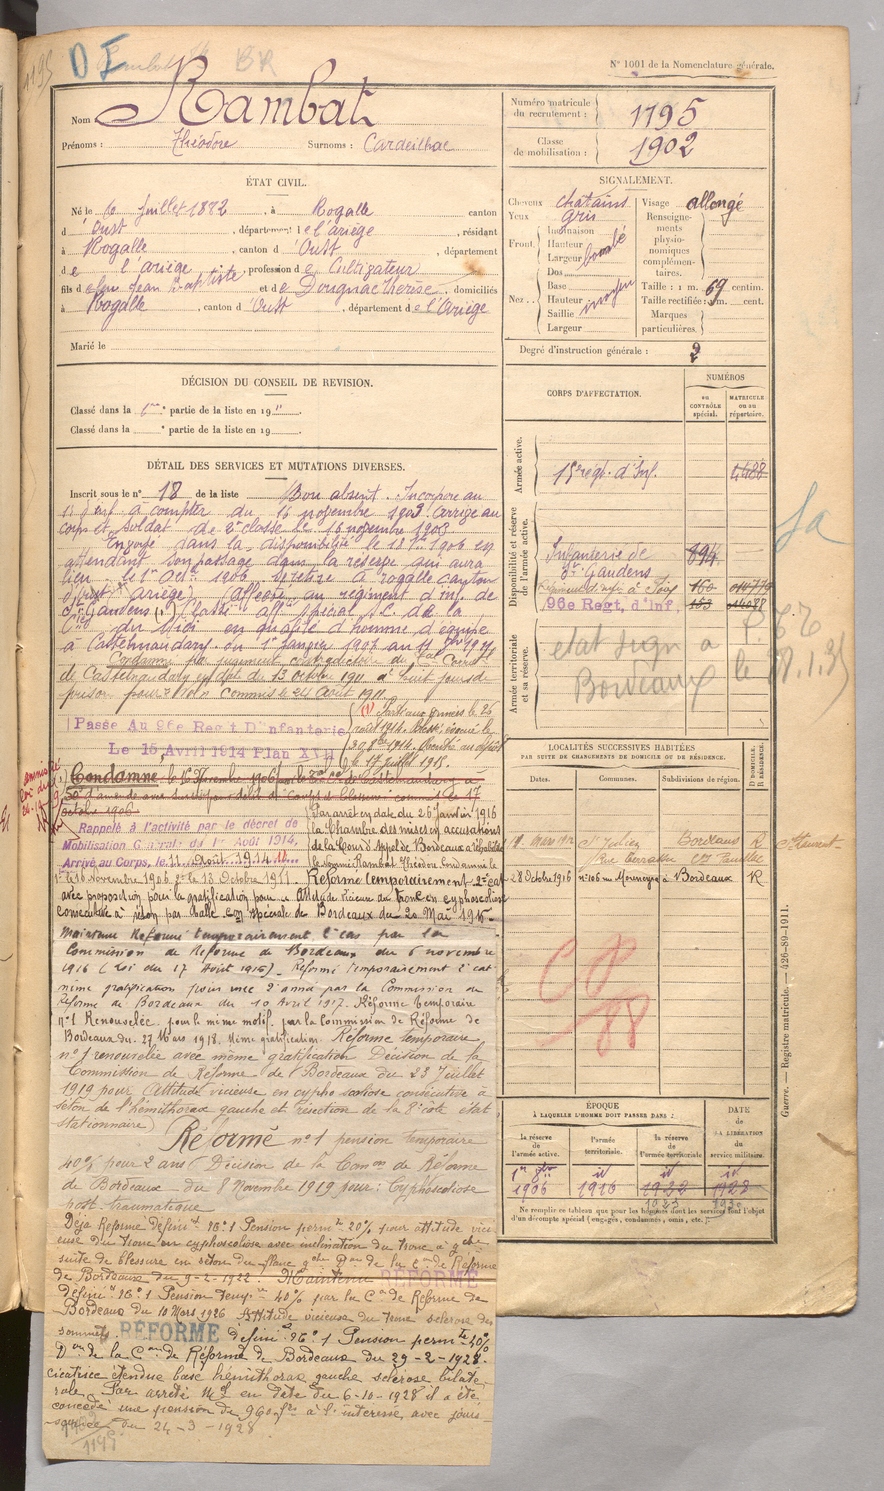 1195
D I
BR
N° 1001 de la Nomenclature générale.
Nom Rambat
Prénoms : Théodore Surnoms : Cardeilhac
Numéro matricule du recrutement : 1195
Classe de mobilisation : 1902
ÉTAT CIVIL.
Né le 6 Juillet 1882, à Rogalle canton
d'Oust, département de l'ariège, résidant
à Rogalle, canton d'Oust, département
de l'ariège, profession de Cultivateur
fils de feu Jean Baptiste et de Dougnac Thérèse domiciliés
à Rogalle, canton d'Oust, département de l'Ariège
Marié le
SIGNALEMENT.
Cheveux châtains
Yeux gris
Front. Inclinaison
Hauteur
Largeur bombé
Nez.. Dos
Base
Hauteur moyen
Saillie
Largeur
Visage allongé
Renseignements physionomiques complémentaires.
Taille : 1 m. 69 centim.
Taille rectifiée : m. cent.
Marques particulières.
Degré d'instruction générale : 2
DÉCISION DU CONSEIL DE REVISION.
Classé dans la 1re partie de la liste en 19
Classé dans la e partie de la liste en 19
DÉTAIL DES SERVICES ET MUTATIONS DIVERSES.
Inscrit sous le n° 18 de la liste Bon absent. Incorporé au
15 d'Inf. à compter du 16 novembre 1903. Arrivé au
corps et soldat de 2e classe le 16 novembre 1903
Envoyé dans la disponibilité le 18 1906 en
attendant son passage dans la réserve qui aura
lieu le 1er Octe 1906 se retire à rogalle canton
d'Oust ariège (affecté au régiment d'inf. de
St Gaudens (1) Classé affté spécial de la
Cie du Midi en qualité d'homme d'équipe
à Castelnaudary du 1er janvier 1907 au 17 1911
Condamné par jugement contradictoire du Tal Correct
de Castelnaudary en date du 13 octobre 1911 à huit jours de
prison pour vol commis le 24 Août 1911.
Passé Au 96e Regt D'infanterie
Le 15 Avril 1914 Plan XVII
(1) Parti aux armées le 26
août 1914. Blessé, évacué le
30.8.1914. au dépôt
le 17 juillet 1915.
Condamné, le 16 Novembre 1906 par le de Castelnaudary à
50f d'amende avec sursis pour délit de "coups et blessures" commis le 17
octobre 1906
amnistié
Loi du
Rappelé à l'activité par le décret de
Mobilisation Générale du 1er Août 1914,
Arrivé au Corps, le 11 Août 1914
Par arrêt en date du 26 Janvier 1916
la Chambre des mises en accusations
de la Cour d'Appel de Bordeaux a réhabilité
le nommé Rambat Théodore condamné le
1° 16 Novembre 1906 2° le 13 Octobre 1911. Réformé temporairement 2e cat
avec proposition pour la gratification pour Attitude vicieuse du tronc en cyphoscoliose
consécutive à séton par balle con spéciale de Bordeaux du 20 Mai 1915
Maintenu Réformé temporairement 2° cas par la
Commission de Réforme de Bordeaux du 6 novembre
1916 (Loi du 17 Août 1915). Réformé Temporairement 2° cat
même gratification pour une 2° année par la Commission de
réforme de Bordeaux du 10 Avril 1917. Réforme temporaire
n°1 Renouvelée. pour le même motif. par la Commission de Réforme de
Bordeaux du 27 Mars 1918. Même gratification. Réforme temporaire
n°1 renouvelée avec même gratification Décision de la
Commission de Réforme de Bordeaux du 23 Juillet
1919 pour Attitude vicieuse en cypho scoliose consécutive à
séton de l'hémithorax gauche et résection de la 8e côte état
stationnaire)
Réformé n°1 pension temporaire
40% pour 2 ans (Décision de la Comon de Réforme
de Bordeaux du 8 Novembre 1919 pour : Cyphoscoliose
post traumatique
Déjà Réformé définit N° 1 Pension permte 20% pour attitude vici
euse du tronc en cyphoscoliose avec inclination du tronc à gche
suite de blessure en séton du flanc gche Don de la Con de Réforme
de Bordeaux du 9-2-1922. Maintenu RÉFORMÉ
définit N° 1 Pension tempre 40% par la Con de Réforme de
Bordeaux du 10 Mars 1926 Attitude vicieuse du tronc sclérose des
sommets. RÉFORMÉ définit N° 1 Pension permte 40%
Don de la Con de Réforme de Bordeaux du 29-2-1928.
cicatrice étendue base hémithorax gauche sclérose bilaté
rale. Par arrêté Mel en date du 6-10-1928 il a été
concédé une pension de 960 frs à l'intéressé avec jouis
sance du 24-3-1928
1195
CORPS D'AFFECTATION.
NUMÉROS
au CONTRÔLE spécial.
MATRICULE ou au répertoire.
Armée active.
15e régt. d'Inf. 4488
Disponibilité et réserve de l'armée active.
Infanterie de St Gaudens 894
Régiment d'inf. à Foix 160 014779
96e Regt, d'Inf. 153 01488
Armée territoriale et sa réserve.
état sign à Bordeaux
le 28.1.31
LOCALITÉS SUCCESSIVES HABITÉES
PAR SUITE DE CHANGEMENTS DE DOMICILE OU DE RÉSIDENCE.
Dates. Communes. Subdivisions de région. D DOMICILE. R RÉSIDENCE.
mars 1912 St Julien Bordeaux R
Rue Terrasse
28 Octobre 1916 n°106 à Bordeaux R
CP
88
ÉPOQUE
À LAQUELLE L'HOMME DOIT PASSER DANS :
la réserve de l'armée active.
l'armée territoriale.
la réserve de l'armée territoriale
DATE de LA LIBÉRATION du service militaire.
1er 8bre 1906
id 1916
id 1922
id 1928
1923
1930
Ne remplir ce tableau que pour les hommes dont les services font l'objet
d'un décompte spécial (engagés, condamnés, omis, etc.).
Guerre. — Registre matricule. — 426-89-1911.